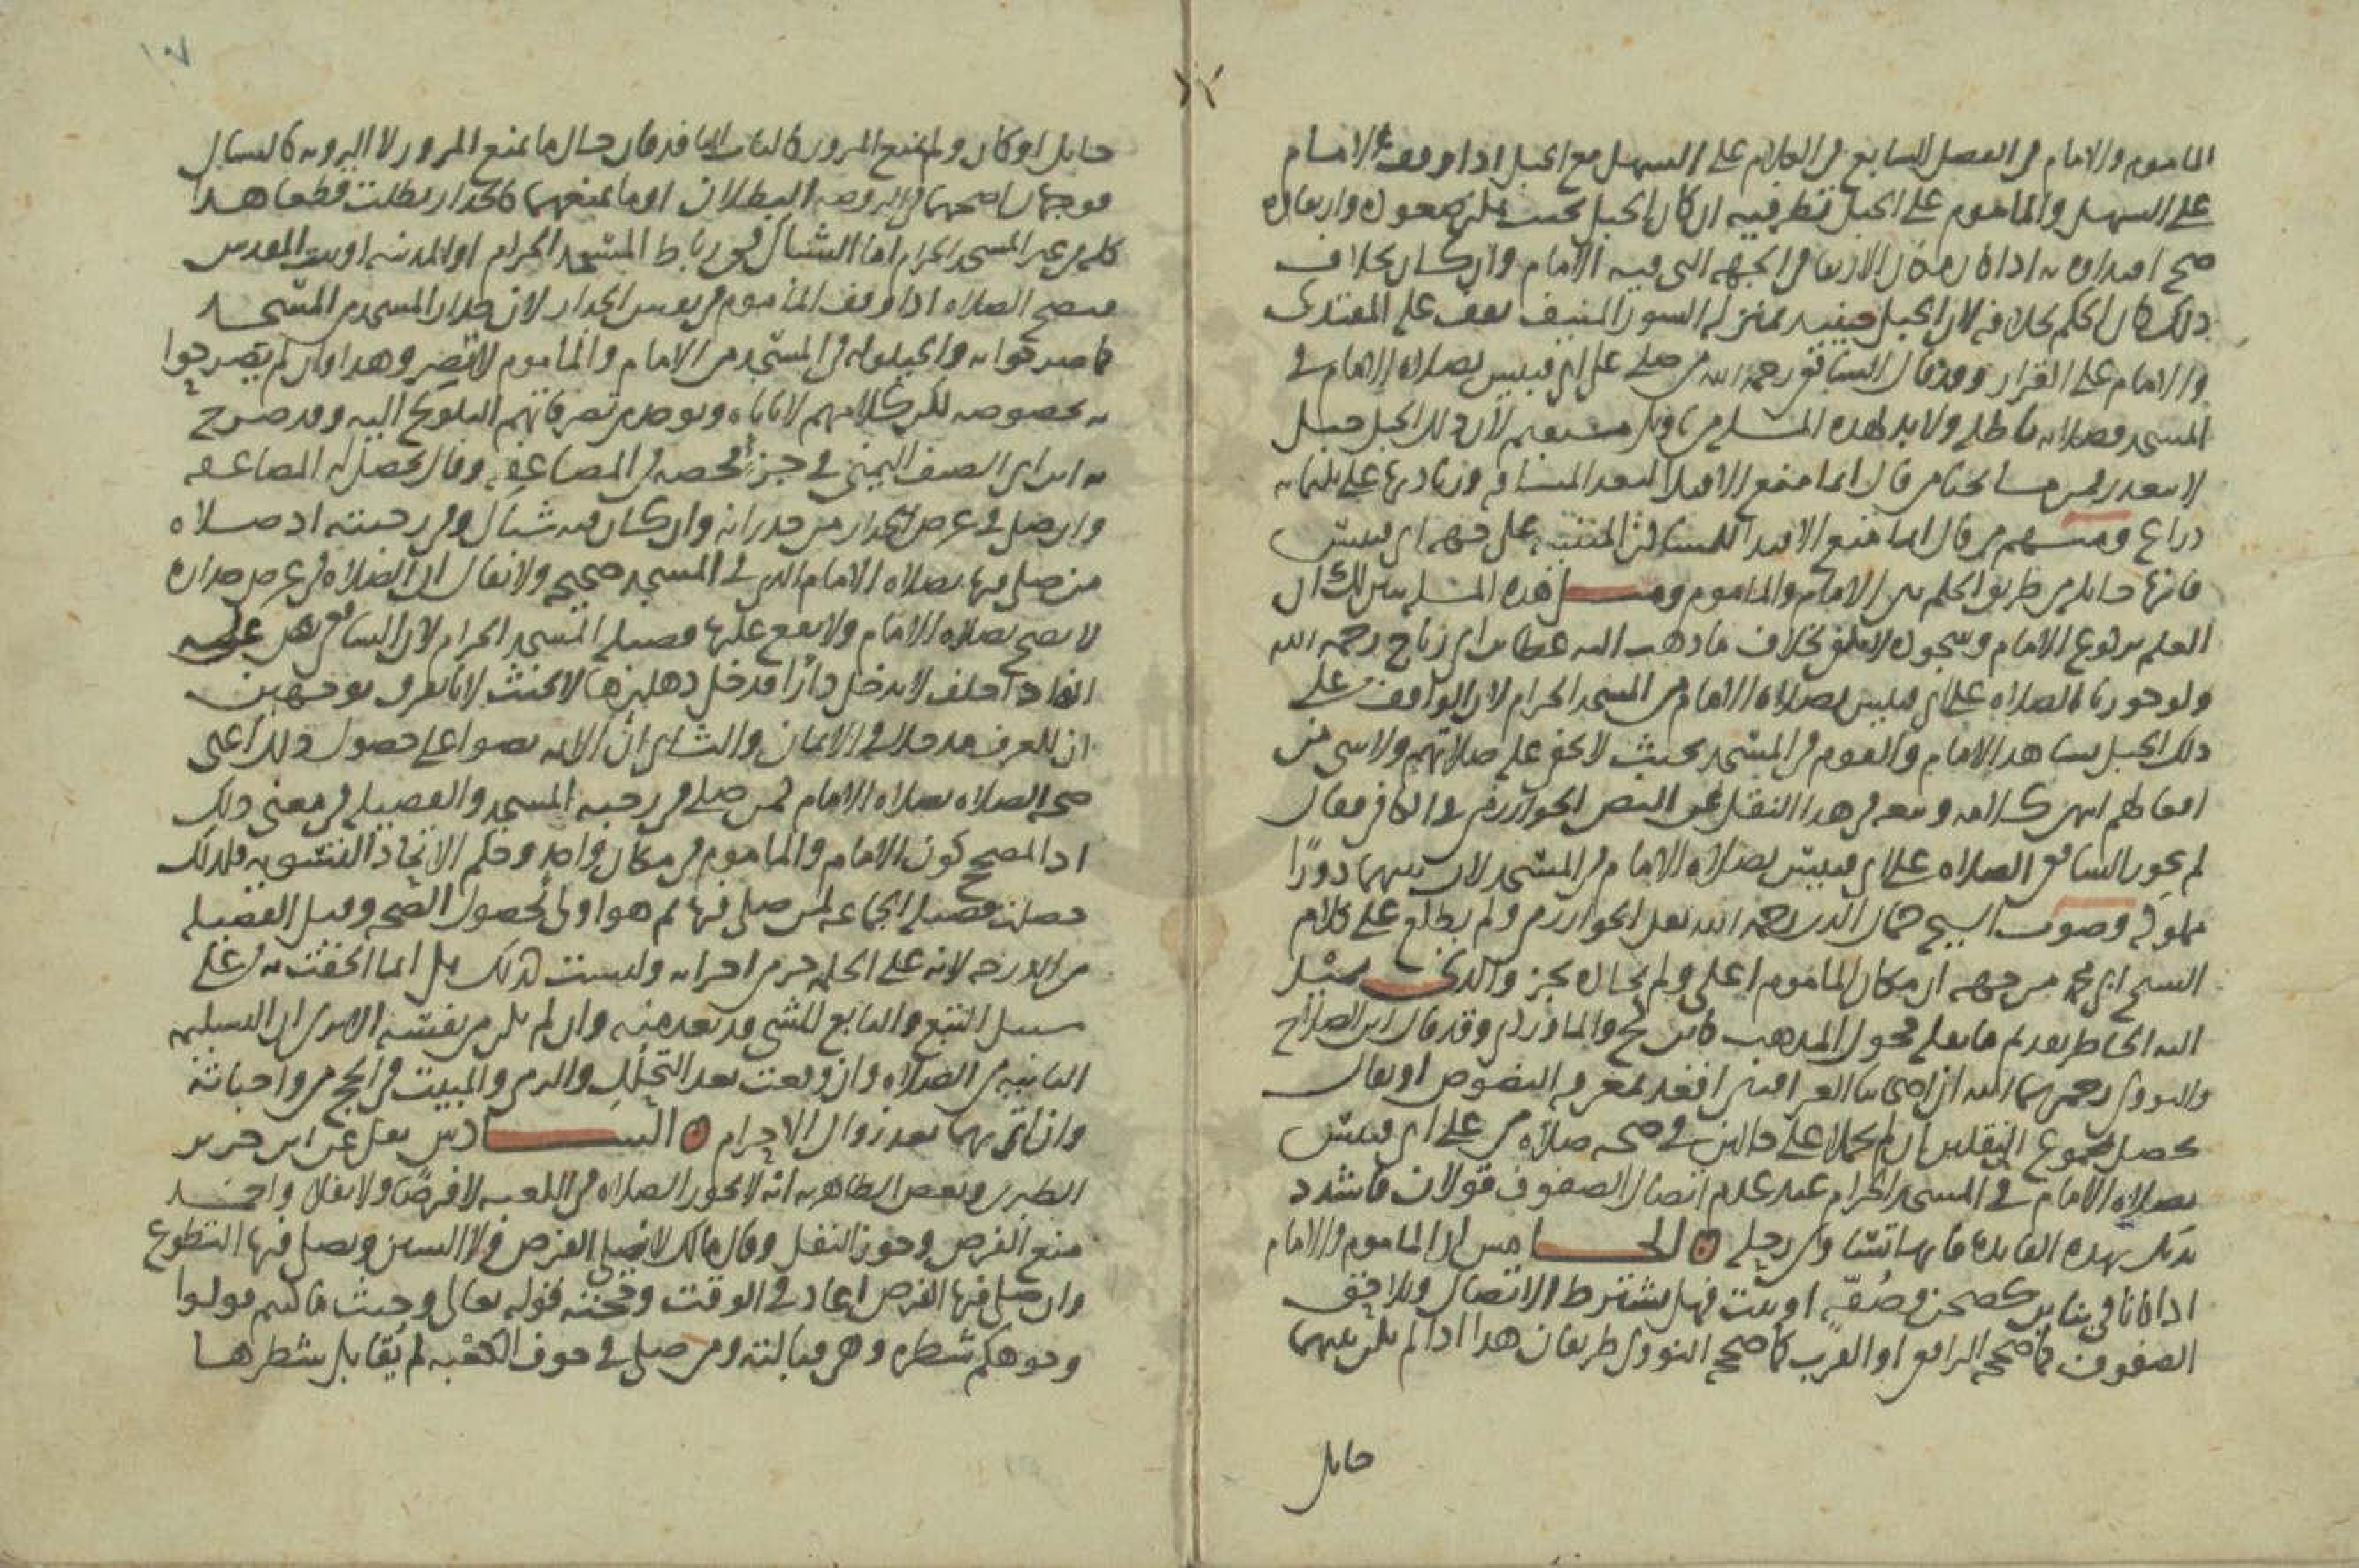 المأموم والإمام في الفصل السابع في الكلام على السهل مع الجبل إذا وقف الإمام
على السهل والمأموم على الجبل نظر فيه إن كان الجبل بحيث يمكن صعوده وارتقاؤه
صح اقتداؤه به إذا كان الارتقاء في الجهة التي فيه الإمام وإن كان بخلاف
ذلك كان الحكم بخلافه لأن الجبل حينئذ بمنزلة السور المنيف يقف على المقتدى
والإمام على القرار وقد قال الشافعي رحمه الله من صلى على أبي قبيس بصلاة الإمام في
المسجد فصلاته باطلة ولا بد لهذه المسئلة من تأويل مستقيم لأن ذلك الجبل جبل
لا يبعد فمن مشايخنا من قال إنما منع الاقتداء لبعد المسافة وزيادتها على ثلثمائة
ذراع ومنهم من قال إنما منع الاقتداء للمساكن المبنية على جهة أبي قبيس
فإنها حائلة من طريق الحكم بين الإمام والمأموم ومن هذه المسئلة يتبين لك أن
العلم بركوع الإمام وسجوده لا يكفي بخلاف ما ذهب إليه عطاء بن أبي رباح رحمه الله
ولو جوزنا الصلاة على أبي قبيس بصلاة الإمام من المسجد الحرام لأن الواقف على
ذلك الجبل يشاهد الإمام والقوم في المسجد بحيث لا يخفى عليه صلاتهم ولا شيء من
أفعالهم انتهى كلامه وتبعه في هذا النقل عن النص الخوارزمي في الكافي فقال
لم يجوز الشافعي الصلاة على أبي قبيس بصلاة الإمام في المسجد لأن بينهما دورًا
مملوكة وصوب الشيخ جمال الدين رحمه الله نقل الخوارزمي ولم يطلع على كلام
الشيخ أبي محمد من جهة أن مكان المأموم أعلى ولم يحاذه بجزء والذي يميل
إليه الخاطر تقديم ما نقله فحول المذهب كابن كج والماوردي وقد قال ابن الصلاح
والنووي رحمهما الله أن أصحابنا العراقيين أقعد بمعرفة النصوص أو يقال
يحصل مجموع النقلين إن لم يحملا على حالين في صحة صلاة من على أبي قبيس
بصلاة الإمام في المسجد الحرام عند عدم اتصال الصفوف قولان فاشدد
يديك بهذه الفائدة فإنها تساوي رحلة الخامس أن المأموم والإمام
إذا كانا في بنائين كصحن وصفة أو بيت فهل يشترط الاتصال وتلاحق
الصفوف كما صححه الرافعي أو القرب كما صححه النووي طريقان هذا إذا لم يكن بينهما
حائل
حائل أو كان ولم يمنع المرور كالباب النافذ فإن حال ما يمنع المرور لا الرؤية كالشباك
فوجهان أصحهما في الروضة البطلان أو ما يمنعهما كالجدار بطلت قطعا هذا
كله في غير المسجد الحرام أما الشباك في رباط المسجد الحرام أو المدينة أو بيت المقدس
فتصح الصلاة إذا وقف المأموم في نفس الجدار لأن جدار المسجد من المسجد
كما صرحوا به والحيلولة في المسجد من الإمام والمأموم لا تضر وهذا وإن لم يصرحوا
به بخصوصه لكن كلامهم لا يأباه ويؤخذ من تصرفاتهم التلويح إليه وقد صرح
به ابن أبي الصيف اليمني في جزء لخصه في المضاعفة وقال تحصل له المضاعفة
وإن صلى في عرض الجدار من جدرانه وإن كان فيه شباك وفي رحبته إذ صلاة
من صلى فيها بصلاة الإمام الذي في المسجد صحيحة ولا يقال إن الصلاة في عرض جداره
لا تصح بصلاة الإمام ولا يقع عليها فضيلة المسجد الحرام لأن الشافعي نص على
أنه إذا حلف لا يدخل دارًا فدخل دهليزها لا يحنث لأنا نفرق بوجهين
أن للعرف مدخلا في الأيمان والثاني أن الأئمة نصوا على حصول ذلك أعني
صحة الصلاة بصلاة الإمام لمن صلى في رحبة المسجد والفضيلة في معنى ذلك
إذ المصحح كون الإمام والمأموم في مكان واحد وحكم الاتحاد التسوية فلذلك
حصلت فضيلة الجماعة لمن صلى فيها ثم هو أولى لحصول الصحة وقيل الفضيلة
من الدرجة لأنه على الجملة جزء من أجزائه وليست كذلك بل إنما ألحقت به على
سبيل التبع والتابع للشيء قد يعد منه وإن لم يكن من نفسه ألا ترى أن التسليمة
الثانية من الصلاة وإن وقعت بعد التحلل والرمي والمبيت في الحج من واجباته
وإن أتى بهما بعد زوال الإحرام السادس نقل عن ابن جرير
الطبري وبعض الظاهرية أنه لا تجوز الصلاة في الكعبة لا فرضًا ولا نفلا وأحمد
منع الفرض وجوز النفل وقال مالك لا يصلى الفرض ولا السنن ويصلى فيها التطوع
وإن صلى فيها الفرض أعاد في الوقت وحجته قوله تعالى وحيث ما كنتم فولوا
وجوهكم شطره وهي قبالته ومن صلى في جوف الكعبة لم يقابل شطرها